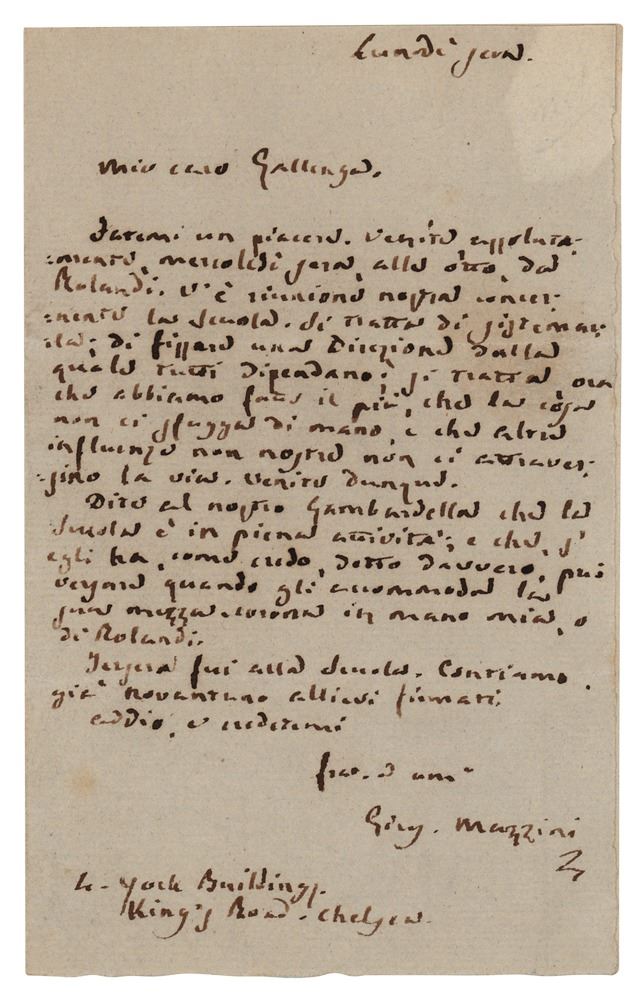 Lunedì sera.
Mio caro Gallenga.
Fatemi un piacere. Venite assoluta-
:mente, mercoledì sera, alle otto, da
Rolandi. V'è riunione nostra concer-
:nente la Scuola. Si tratta di sistemar-
:la; di fissare una Direzione dalla
quale tutti dipendano; si tratta, ora
che abbiamo fatto il più, che la cosa
non ci sfugga di mano, e che altre
influenze non nostre non ci attraver-
:sino la via. Venite dunque.
Dite al nostro Gambardella che la
Scuola è in piena attività; e che, s'
egli ha, come credo, detto davvero, può
versare quando gli accomoda la
sua mezza-corona in mano mia, o
di Rolandi.
Jersera fui alla Scuola. Contiamo
già novantuno allievi firmati.
addio, e credetemi
frat. ed am°
Gius. Mazzini
4- York Buildings.
King's Road. Chelsea.